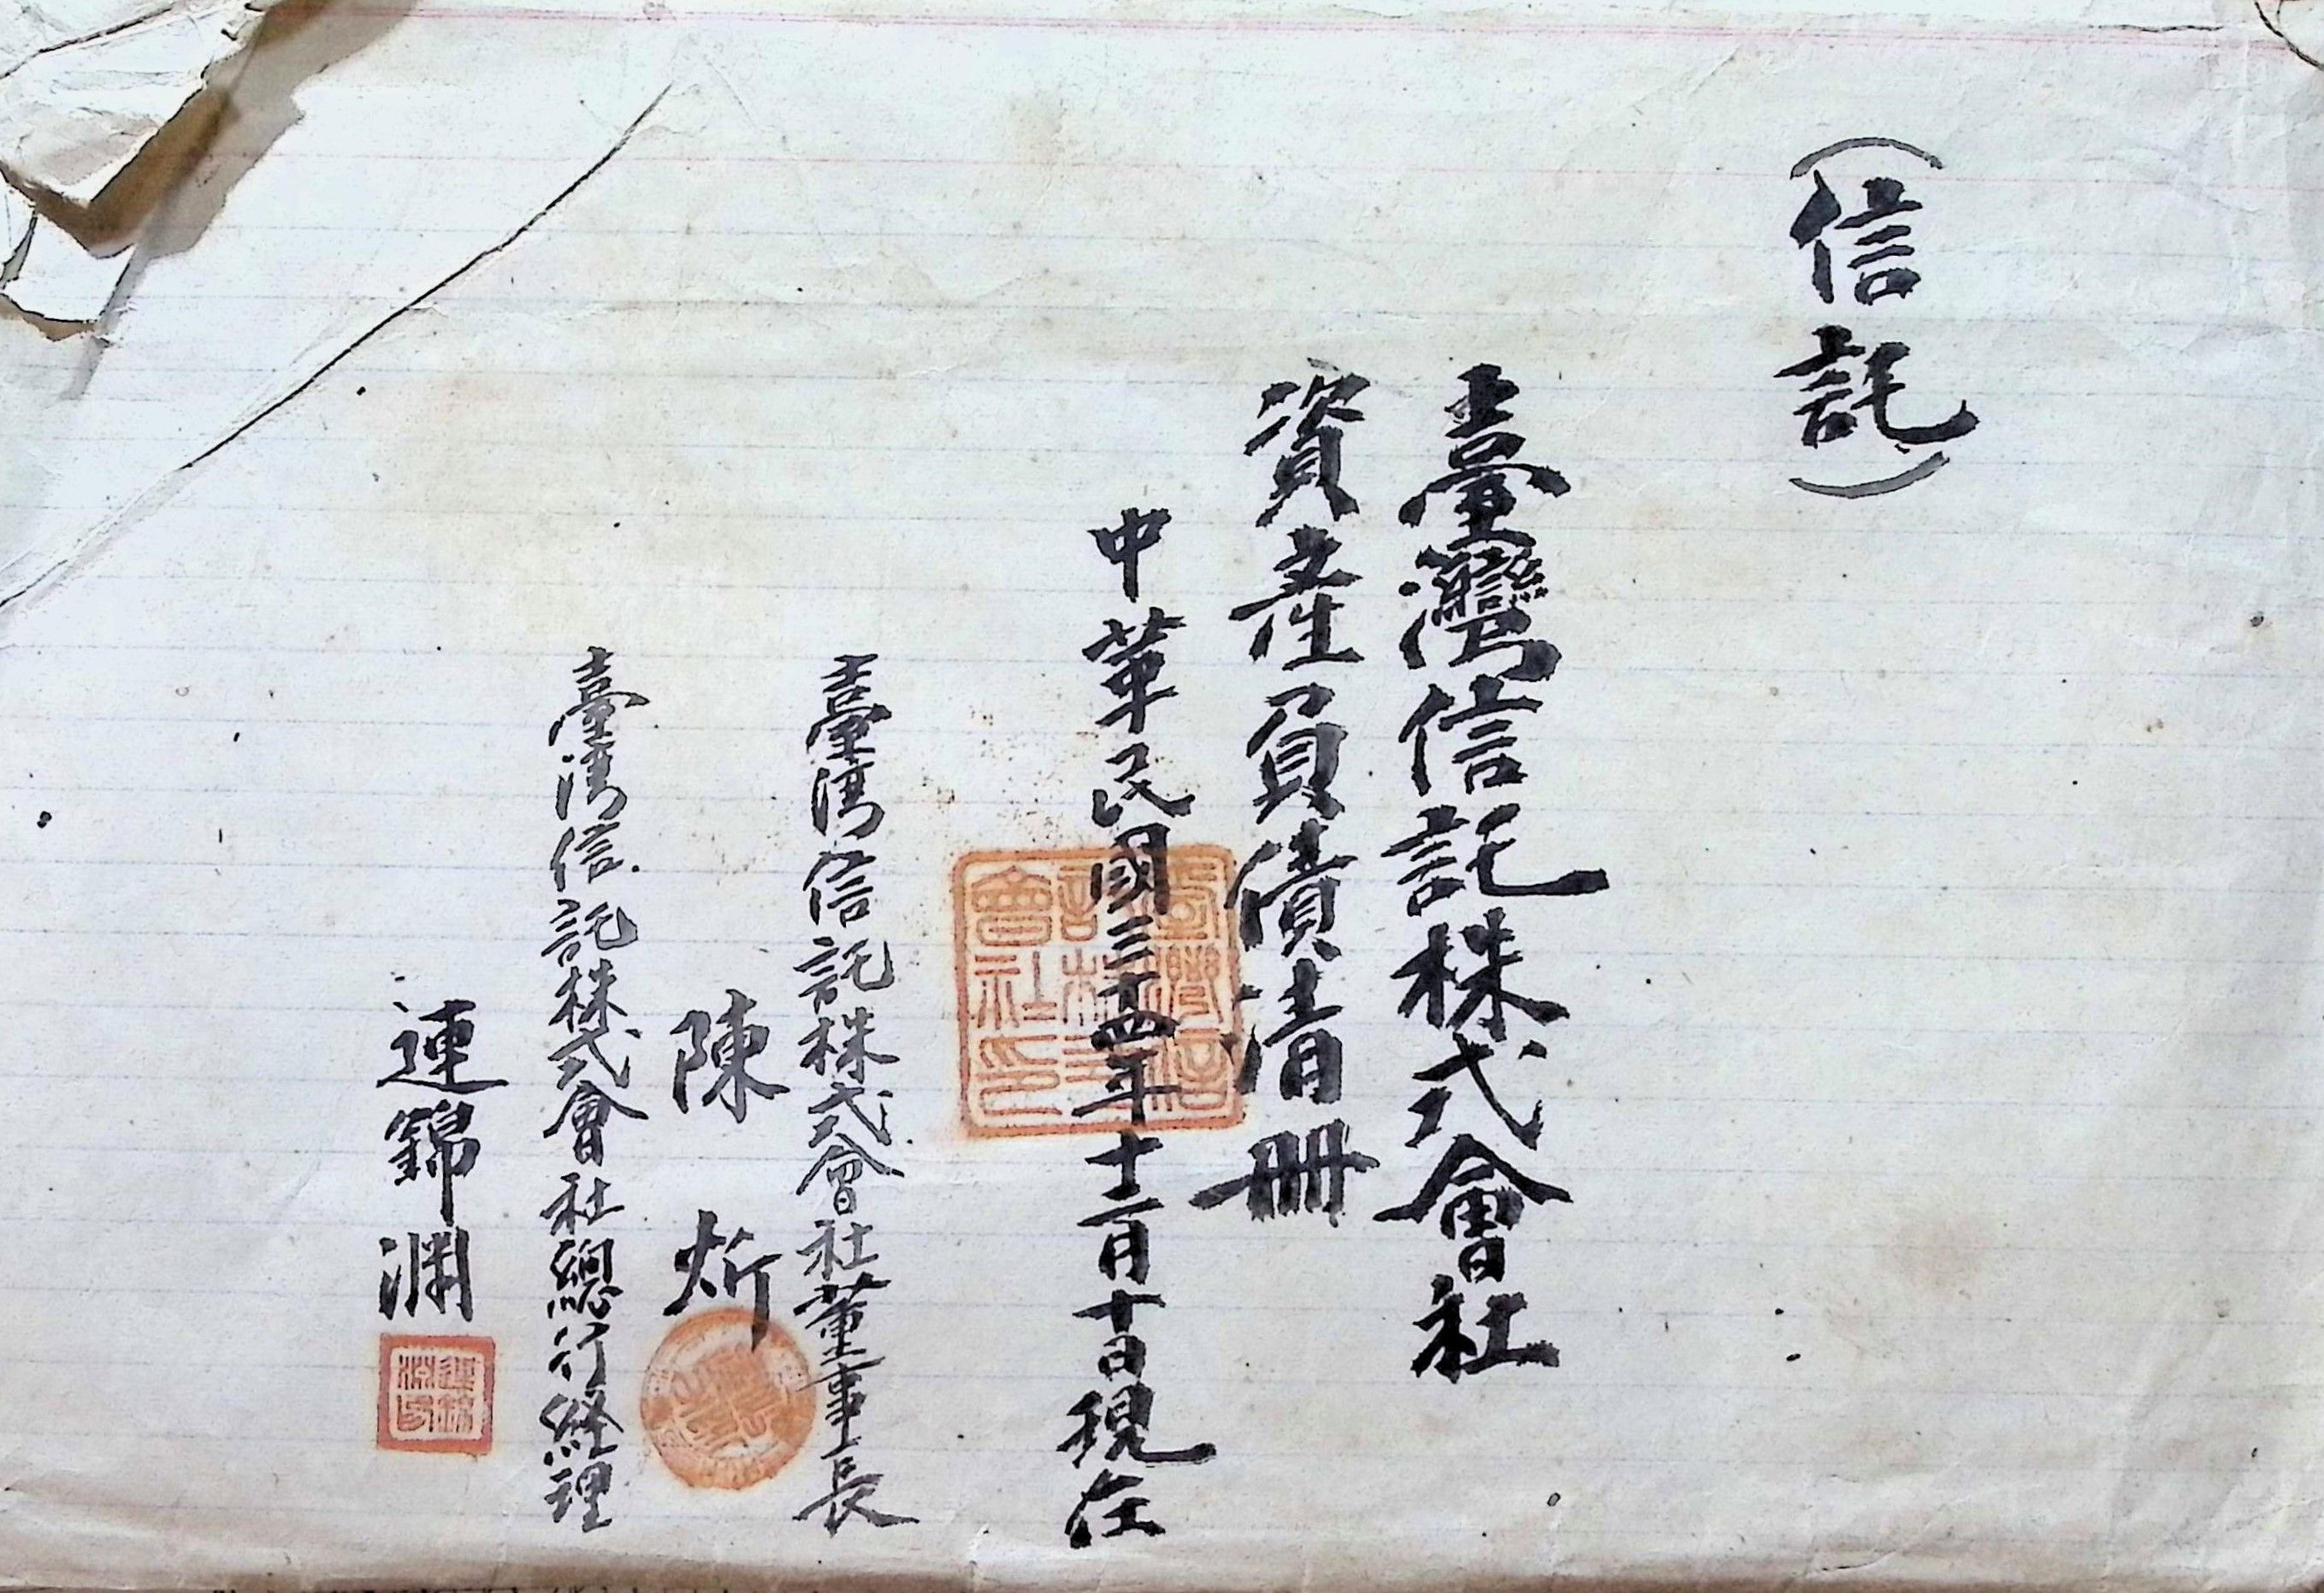 (信託)
臺灣信託株式會社
資產負債清册
中華民國三十四年十二月十日現在
臺灣信託株式會社印
臺湾信託株式會社董事長
陳炘
臺湾信託株式會社總行経理
連錦渊